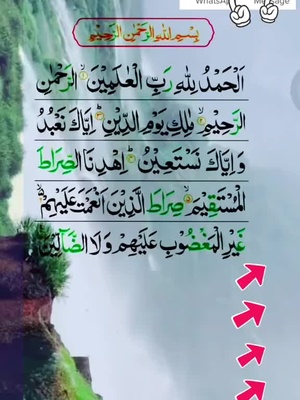 WhatsA
Message
بِسْمِ اللهِ الرَّحْمٰنِ الرَّحِيْمِ
اَلْحَمْدُ لِلّٰهِ رَبِّ الْعٰلَمِيْنَ ۙ الرَّحْمٰنِ
الرَّحِيْمِ ۙ مٰلِكِ يَوْمِ الدِّيْنِ ؕ اِيَّاكَ نَعْبُدُ
وَ اِيَّاكَ نَسْتَعِيْنُ ؕ اِهْدِنَا الصِّرَاطَ
الْمُسْتَقِيْمَ ۙ صِرَاطَ الَّذِيْنَ اَنْعَمْتَ عَلَيْهِمْ ۙ
غَيْرِ الْمَغْضُوْبِ عَلَيْهِمْ وَ لَا الضَّآلِّيْنَ